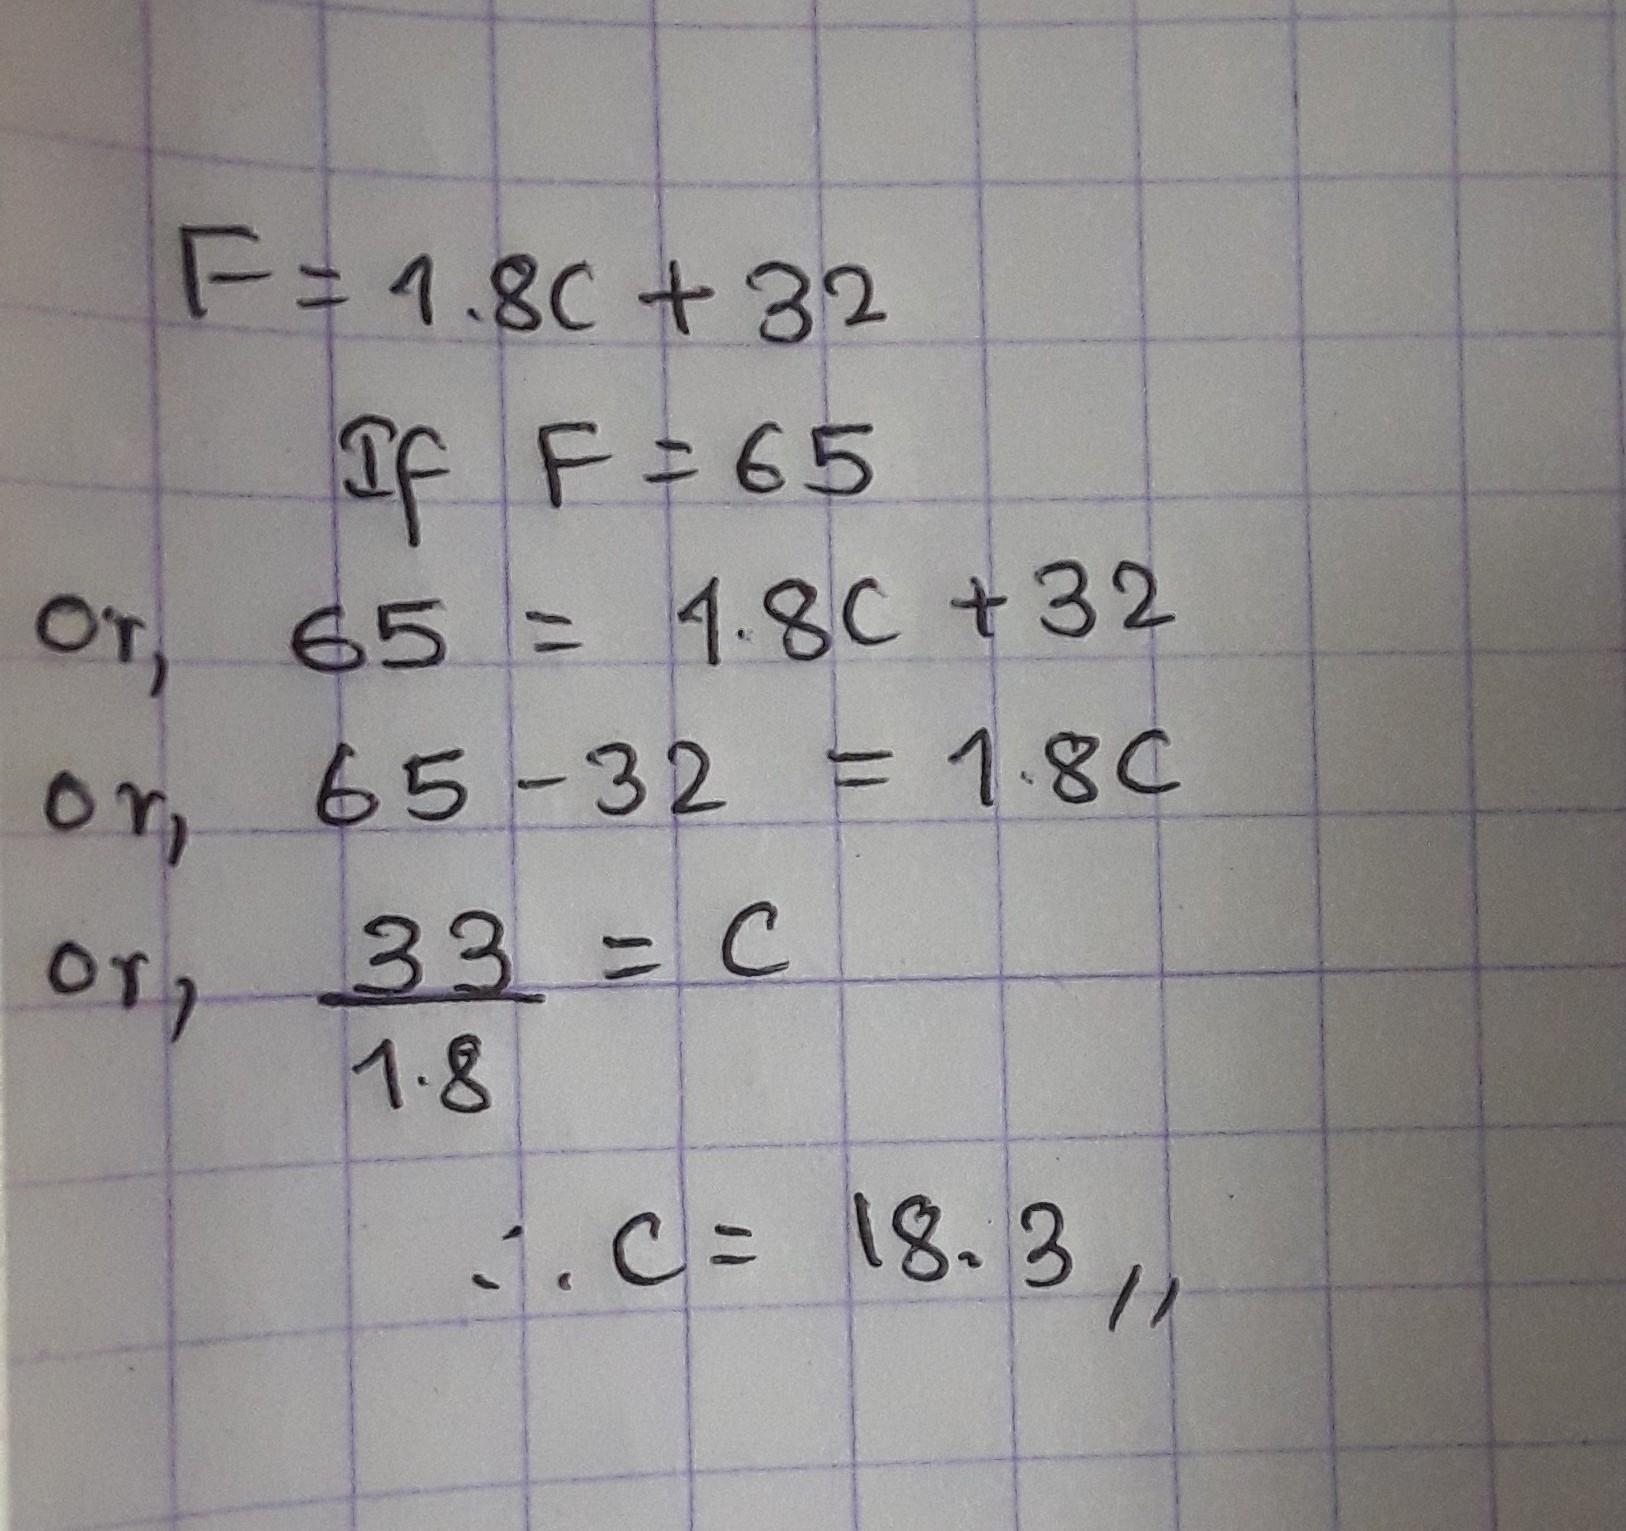 F = 1.8C + 32
If F = 65
or, 65 = 1.8C + 32
or, 65 - 32 = 1.8C
or, 33/1.8 = C
∴ C = 18.3,,